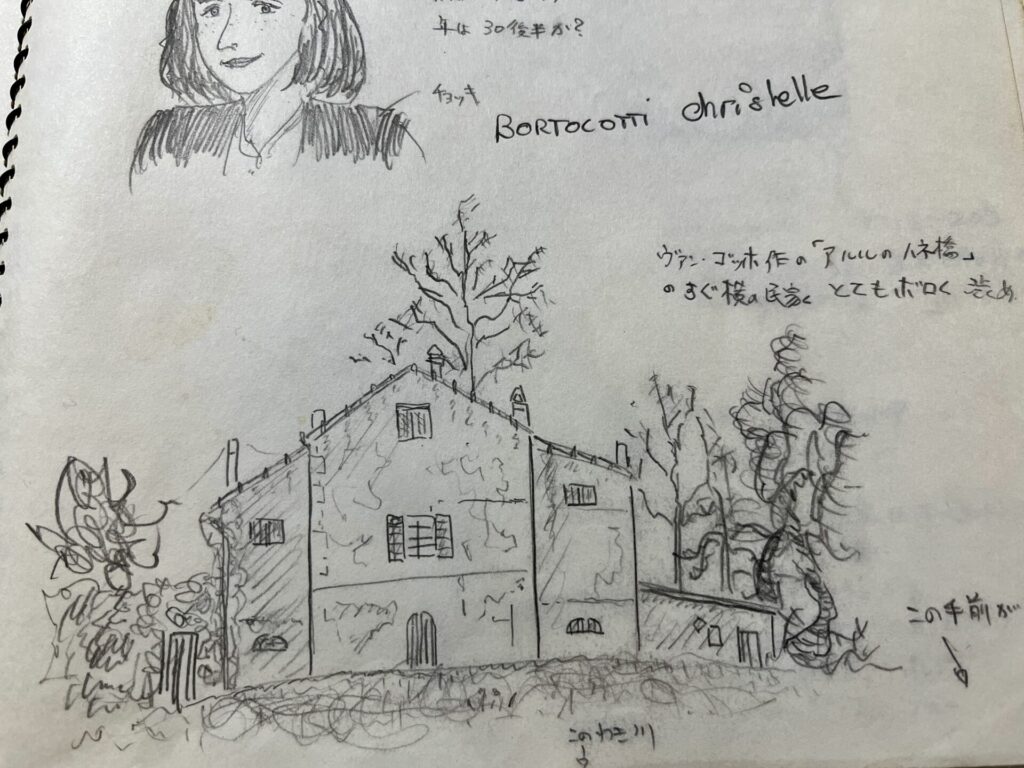 年は 30後半か?
チョッキ
BORTOCOTTI Christelle
ヴァン・ゴッホ作の「アルルのハネ橋」
のすぐ横の民家 とてもボロく 渋め
この手前が
このわき川